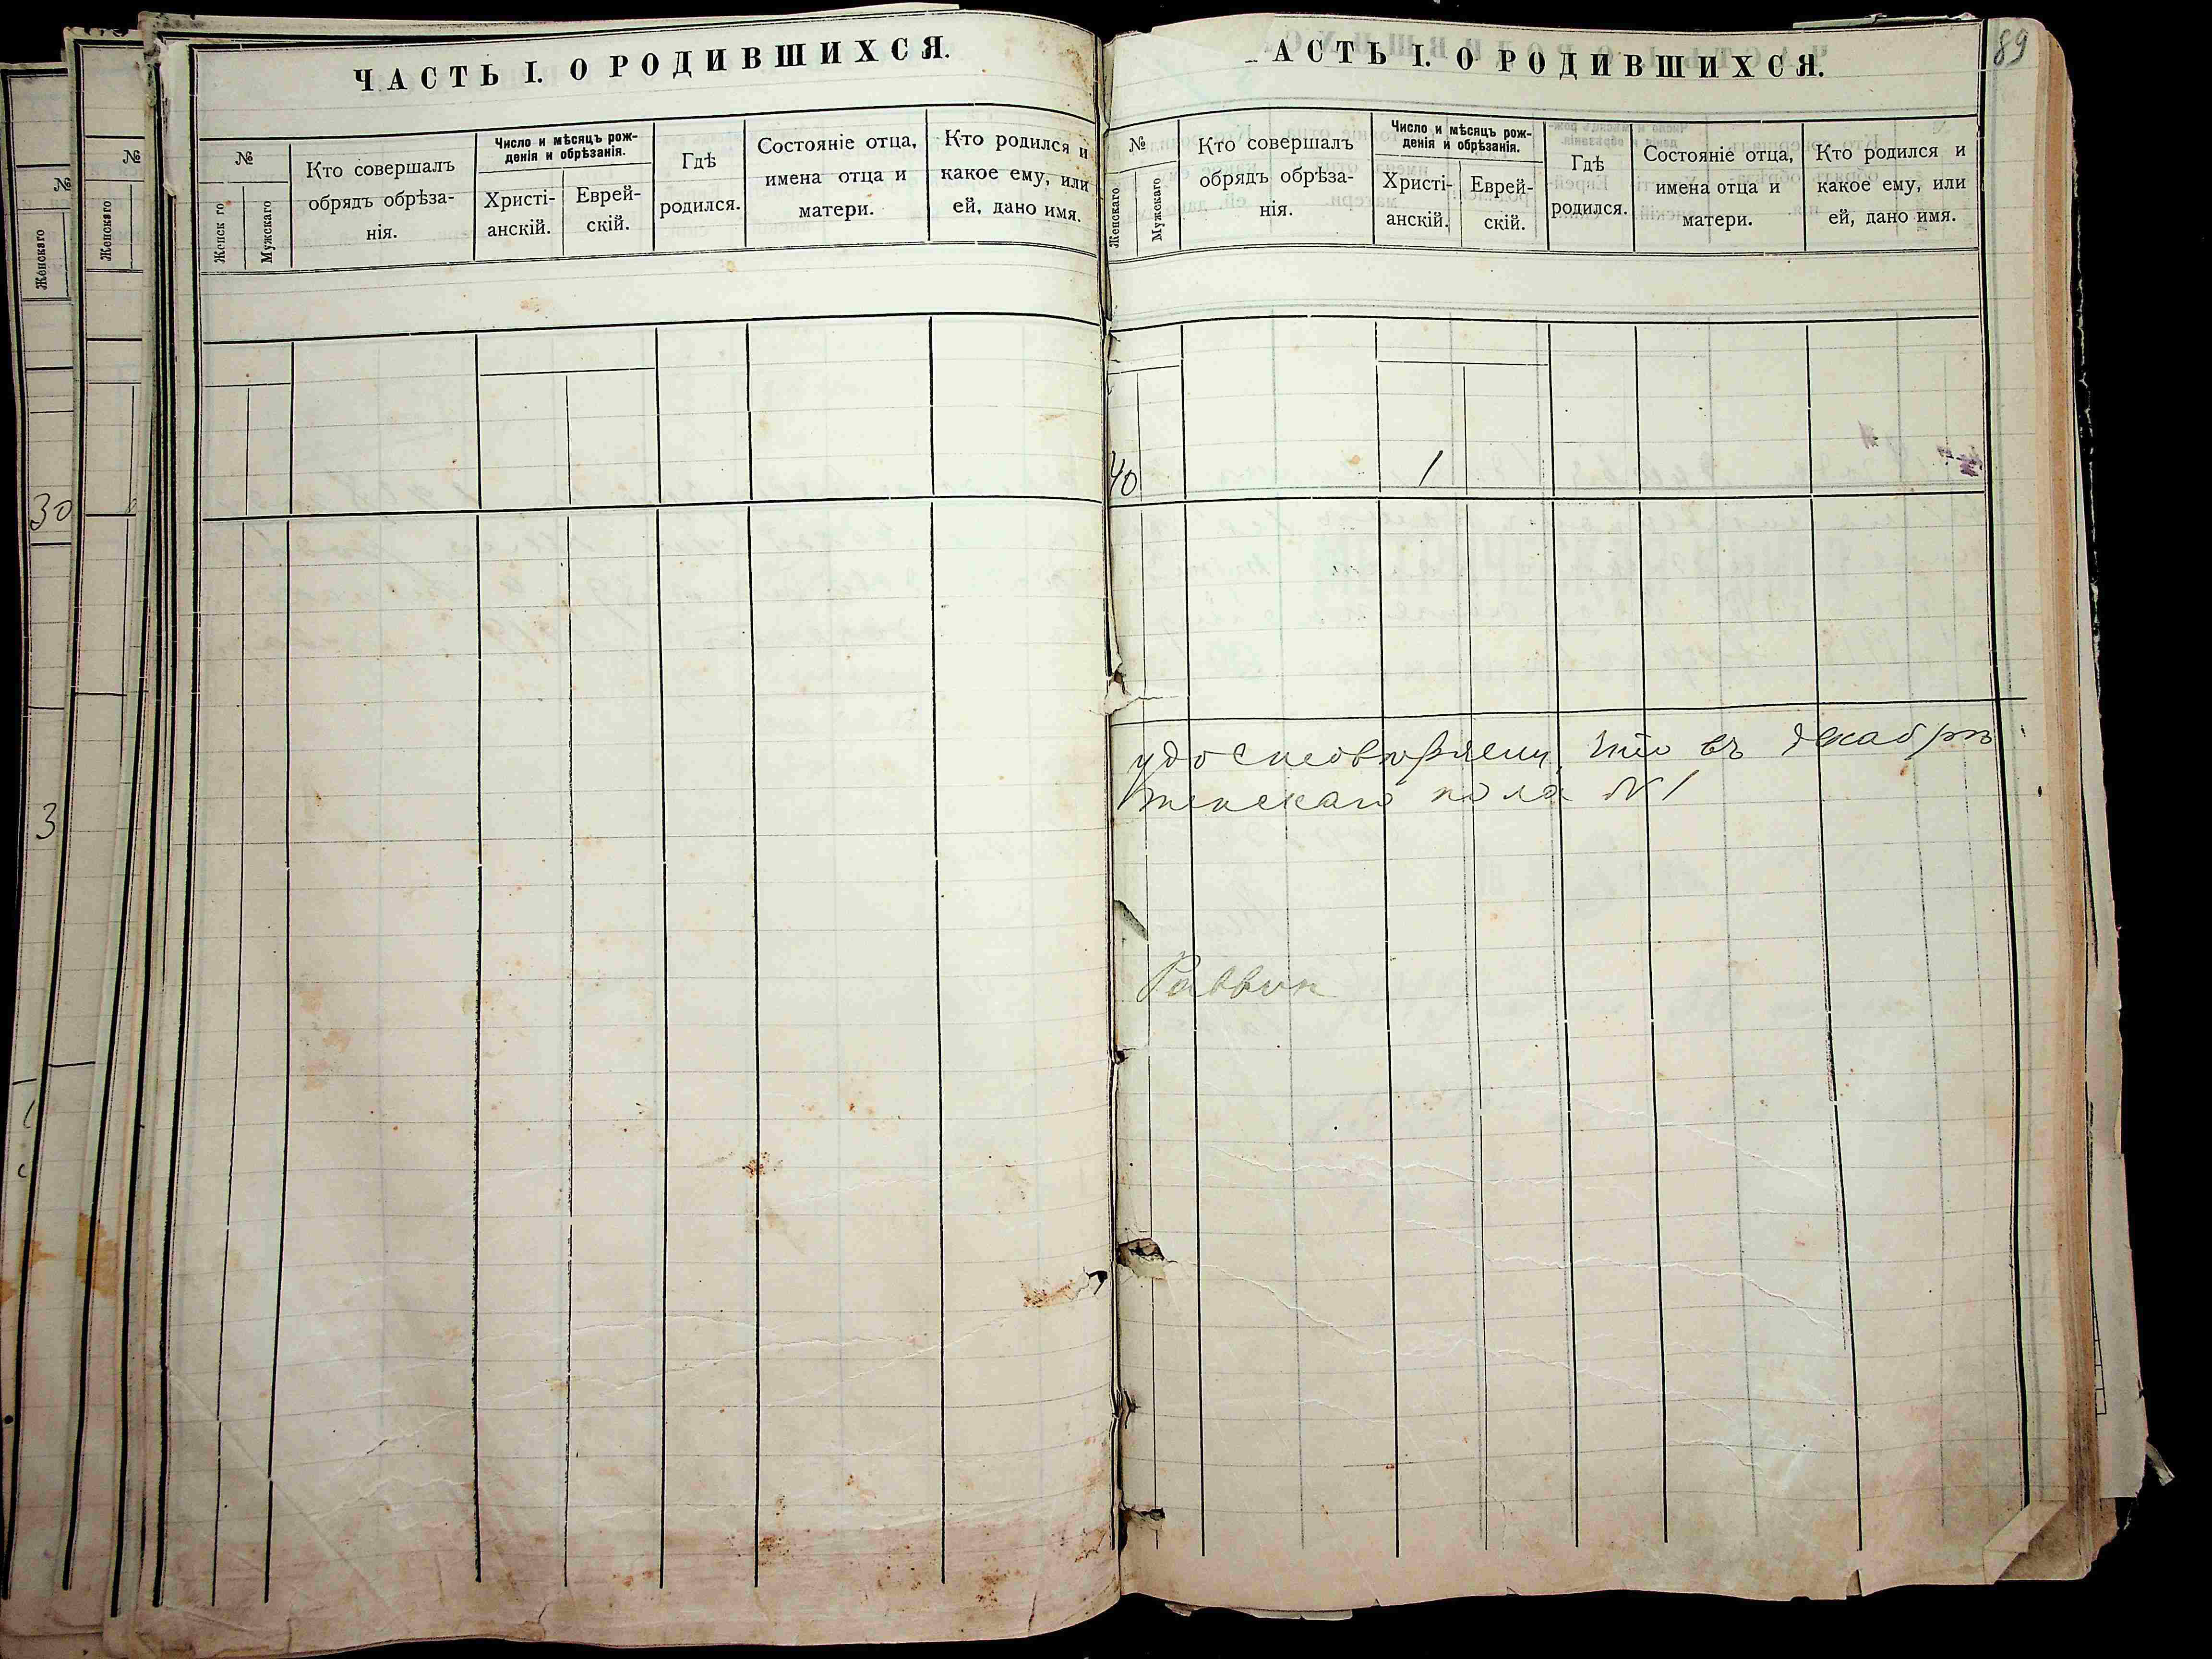 ЧАСТЬ I. О РОДИВШИХСЯ.
№
Женск го
Мужскаго
Кто совершалъ
обрядъ обрѣза-
нія.
Число и мѣсяцъ рож-
денія и обрѣзанія.
Христі-
анскій.
Еврей-
скій.
Гдѣ
родился.
Состояніе отца,
имена отца и
матери.
Кто родился и
какое ему, или
ей, дано имя.
АСТЬ I. О РОДИВШИХСЯ.
89
№
Женскаго
Мужскаго
Кто совершалъ
обрядъ обрѣза-
нія.
Число и мѣсяцъ рож-
денія и обрѣзанія.
Христі-
анскій.
Еврей-
скій.
Гдѣ
родился.
Состояніе отца,
имена отца и
матери.
Кто родился и
какое ему, или
ей, дано имя.
40 1
удостовѣряемъ, что въ декабрѣ
женскаго пола №1
Раввин
№
Женскаго
30
3
№
Женскаго